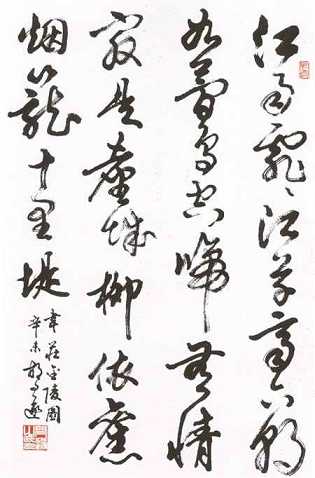 江雨霏霏江草齊六朝
如夢鳥空啼無情
最是臺城柳依舊
烟籠十里堤
韋莊金陵圖
辛未胡問遂